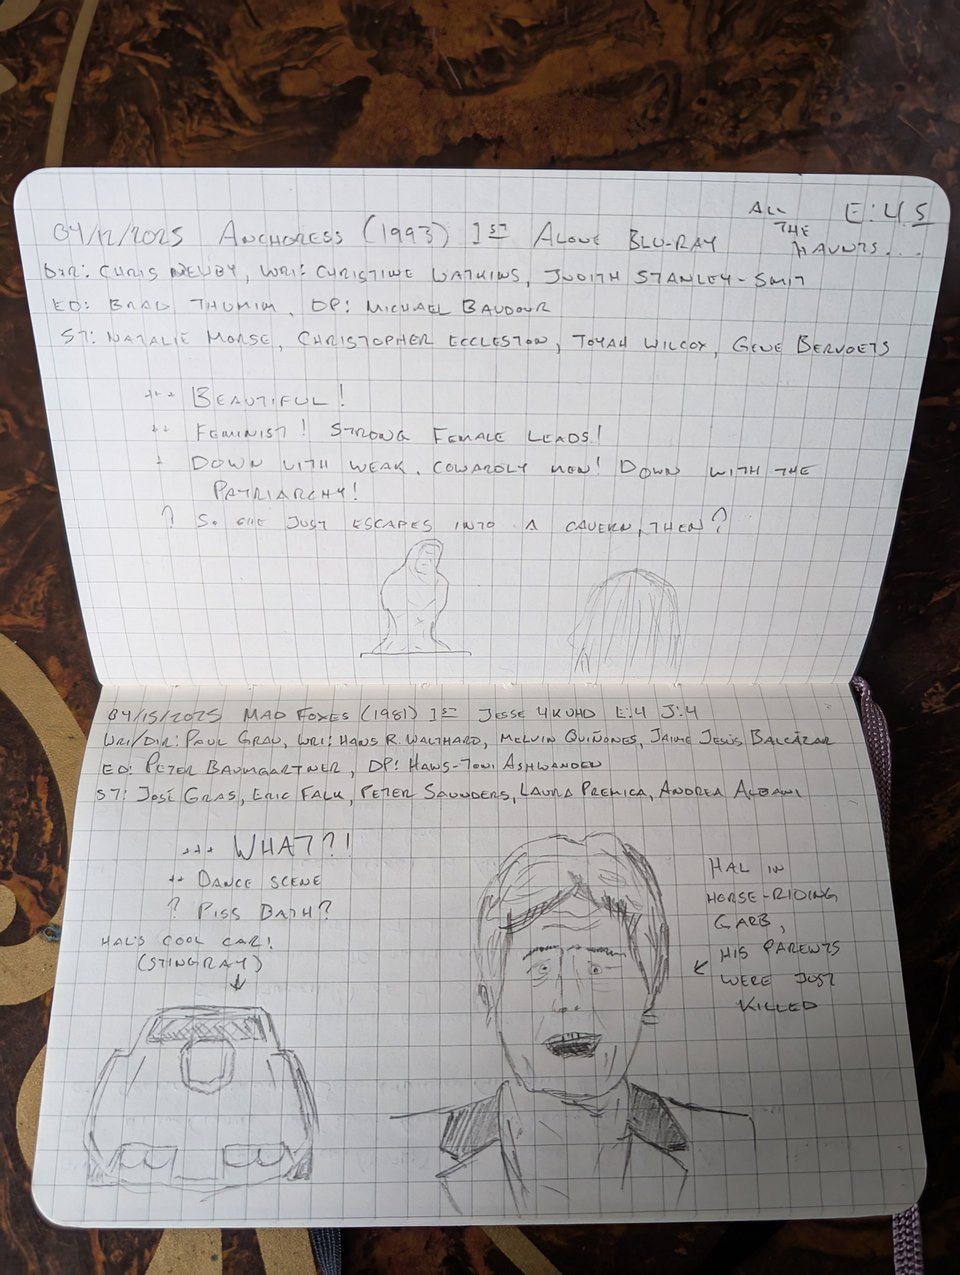 ALL E:4.5
04/12/2025 ANCHORESS (1993) 1ST ALONE BLU-RAY THE HAUNTS...
DIR: CHRIS NEWBY, WRI: CHRISTINE WATKINS, JUDITH STANLEY-SMIT
ED: BRAD THUMIM, DP: MICHAEL BAUDOUR
ST: NATALIE MORSE, CHRISTOPHER ECCLESTON, TOYAH WILCOX, GENE BERVOETS
+++ BEAUTIFUL!
++ FEMINIST! STRONG FEMALE LEADS!
+ DOWN WITH WEAK, COWARDLY MEN! DOWN WITH THE
PATRIARCHY!
? SO SHE JUST ESCAPES INTO A CAVERN, THEN?
04/15/2025 MAD FOXES (1981) 1ST JESSE 4KUHD E:4 J:4
WRI/DIR: PAUL GRAU, WRI: HANS R. WALTHARD, MELVIN QUIÑONES, JAIME JESÚS BALCÁZAR
ED: PETER BAUMGARTNER, DP: HANS-TONI ASHWANDEN
ST: JOSÉ GRAS, ERIC FALK, PETER SAUNDERS, LAURA PREMICA, ANDREA ALBANI
+++ WHAT?!
++ DANCE SCENE
? PISS BATH?
HAL'S COOL CAR!
(STINGRAY)
HAL IN
HORSE-RIDING
GARB,
HIS PARENTS
WERE JUST
KILLED